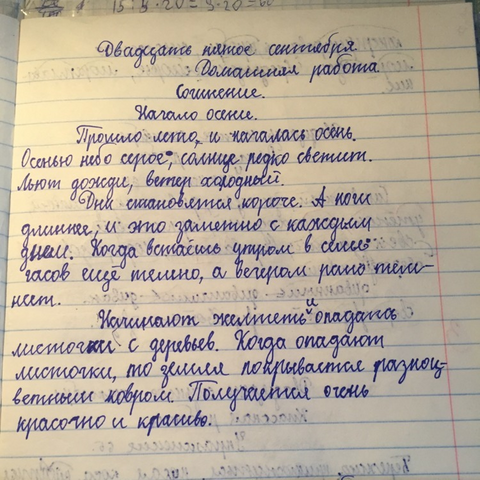 15:3·20=5·20=
Двадцать пятое сентября.
Домашняя работа
Сочинение.
Начало осени.
Прошло лето, и началась осень.
Осенью небо серое, солнце редко светит.
Льют дожди, ветер холодный.
Дни становятся короче. А ночи
длиннее, и это заметно с каждым
днем. Когда встаёшь утром в семь
часов ещё темно, а вечером рано тем-
неет.
Начинают желтеть и опадать
листочки с деревьев. Когда опадают
листочки, то земля покрывается разноц-
ветным ковром. Получается очень
красочно и красиво.